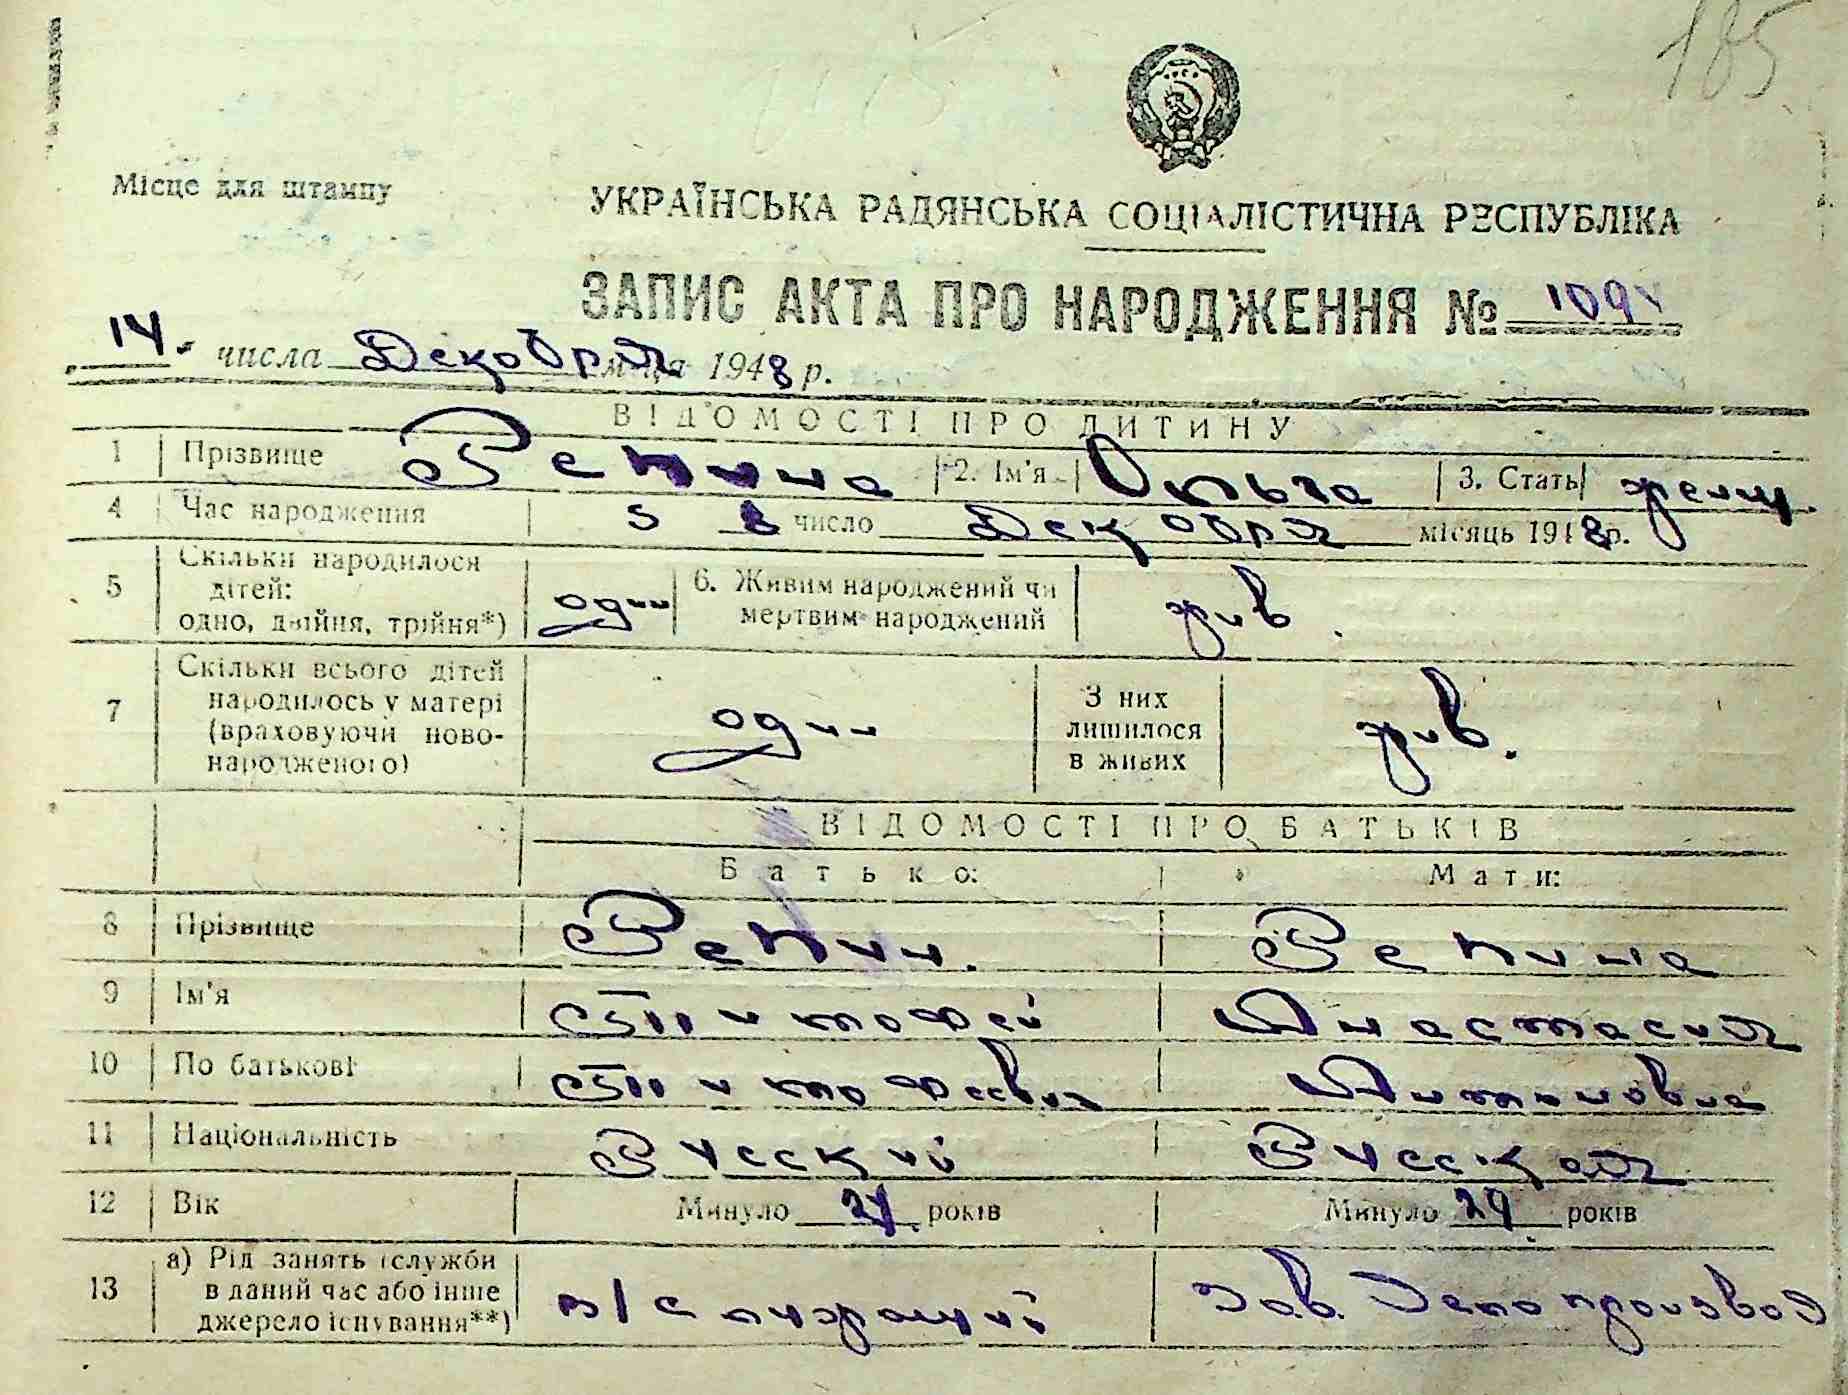 185
Місце для штампу
УКРАЇНСЬКА РАДЯНСЬКА СОЦІАЛІСТИЧНА РЕСПУБЛІКА
ЗАПИС АКТА ПРО НАРОДЖЕННЯ № 1094
"14" числа Декабря м-ця 1948 р.
ВІДОМОСТІ ПРО ДИТИНУ
1 Прізвище Репина 2. Ім'я Ольга 3. Стать женщ.
4 Час народження 5 число Декабря місяць 1948 р.
5 Скільки народилося дітей: одно, двійня, трійня*) один 6. Живим народжений чи мертвим народжений жив.
7 Скільки всього дітей народилось у матері (враховуючи новонародженого) один З них лишилося в живих жив.
ВІДОМОСТІ ПРО БАТЬКІВ
Батько: Мати:
8 Прізвище Репин. Репина
9 Ім'я Тимофей Анастасия
10 По батькові Тимофеевич Антоновна
11 Національність Русский Русская
12 Вік Минуло років Минуло 29 років
13 а) Рід занять (служби в даний час або інше джерело існування**) в/служащий зав. Делопроизвод